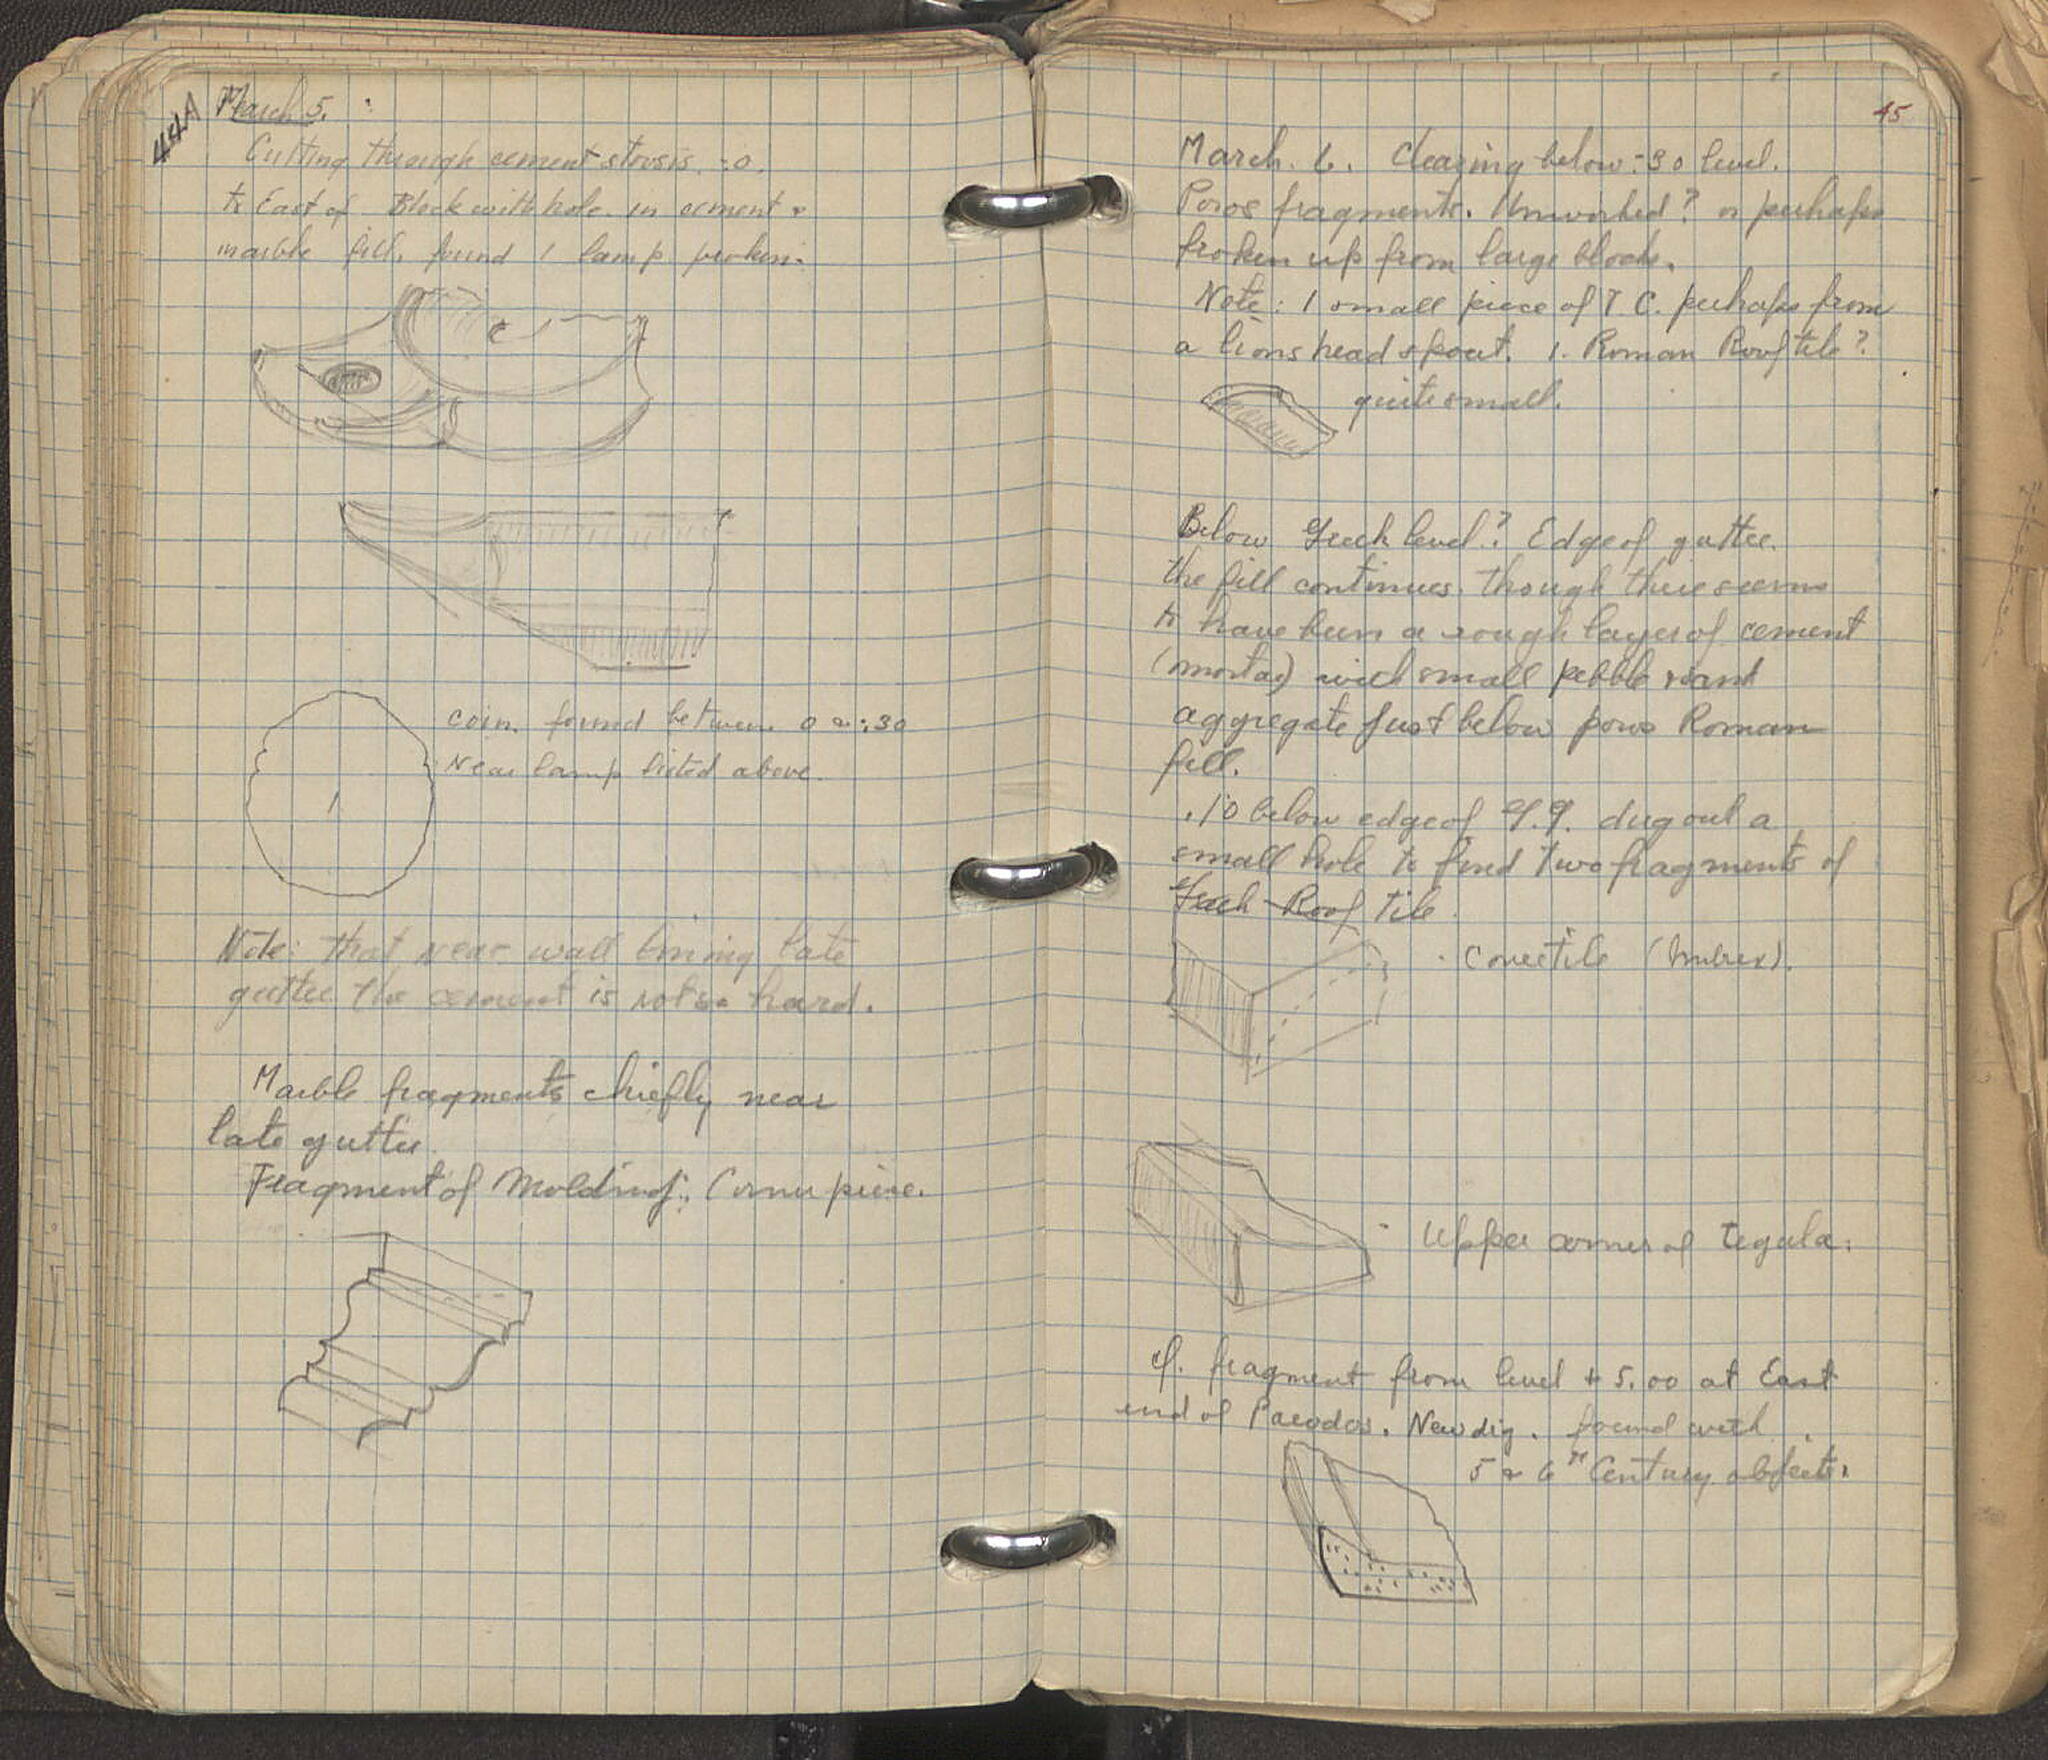 44A
March 5.
Cutting through cement strosis. :0.
to East of Block with hole. in cement &
marble fill. found 1 lamp broken.
coin. found between 0 & :30
Near lamp listed above.
1
Note: that near wall lining late
gutter the cement is not so hard.
Marble fragments chiefly near
late gutter.
Fragment of Molding: Corner piece.
45
March. 6. Clearing below :30 level.
Poros fragments. Unworked? or perhaps
broken up from large block.
Note: 1 small piece of T.C. perhaps from
a lions head spout. 1. Roman Roof tile?
quite small.
Below Greek level? Edge of gutter.
the fill continues. though there seems
to have been a rough layer of cement
(mortar) with small pebble & sand
aggregate just below poros Roman
fill.
.10 below edge of G.G. dug out a
small hole to find two fragments of
Greek Roof Tile.
Cover tile (Imbrex).
Upper corner of tegula.
cf. fragment from level + 5.00 at East
end of Parodos. New dig. found with
5 & 6th Century objects.